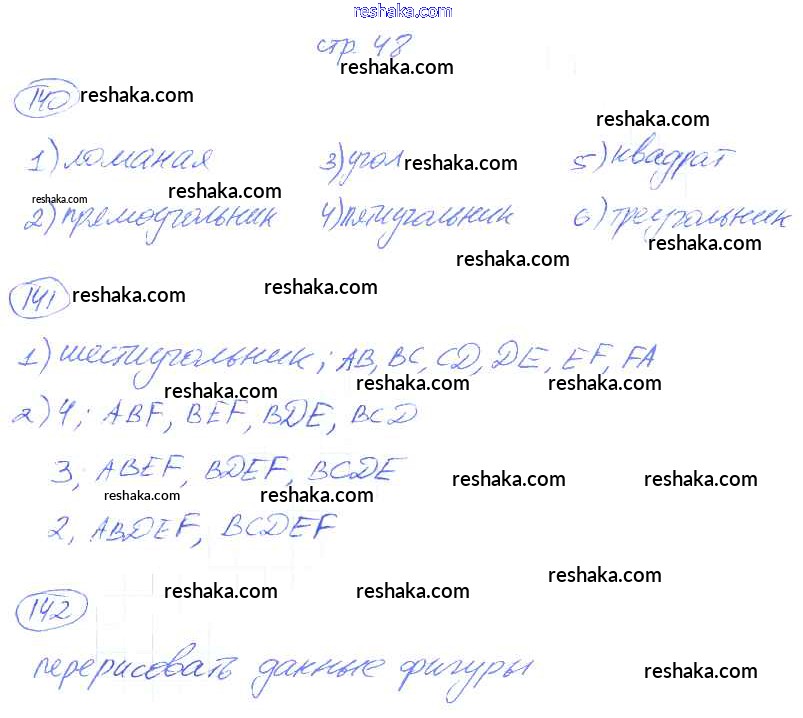 reshaka.com
стр. 48
reshaka.com
140 reshaka.com
reshaka.com
1) ломаная 3) угол reshaka.com 5) квадрат
reshaka.com reshaka.com
2) прямоугольник 4) пятиугольник 6) треугольник
reshaka.com reshaka.com
141 reshaka.com reshaka.com
1) шестиугольник; AB, BC, CD, DE, EF, FA
reshaka.com reshaka.com reshaka.com
2) 4; ABF, BEF, BDE, BCD
3, ABEF, BDEF, BCDE
reshaka.com reshaka.com reshaka.com reshaka.com
2, ABDEF, BCDEF
reshaka.com
142 reshaka.com reshaka.com
перерисовать данные фигуры
reshaka.com